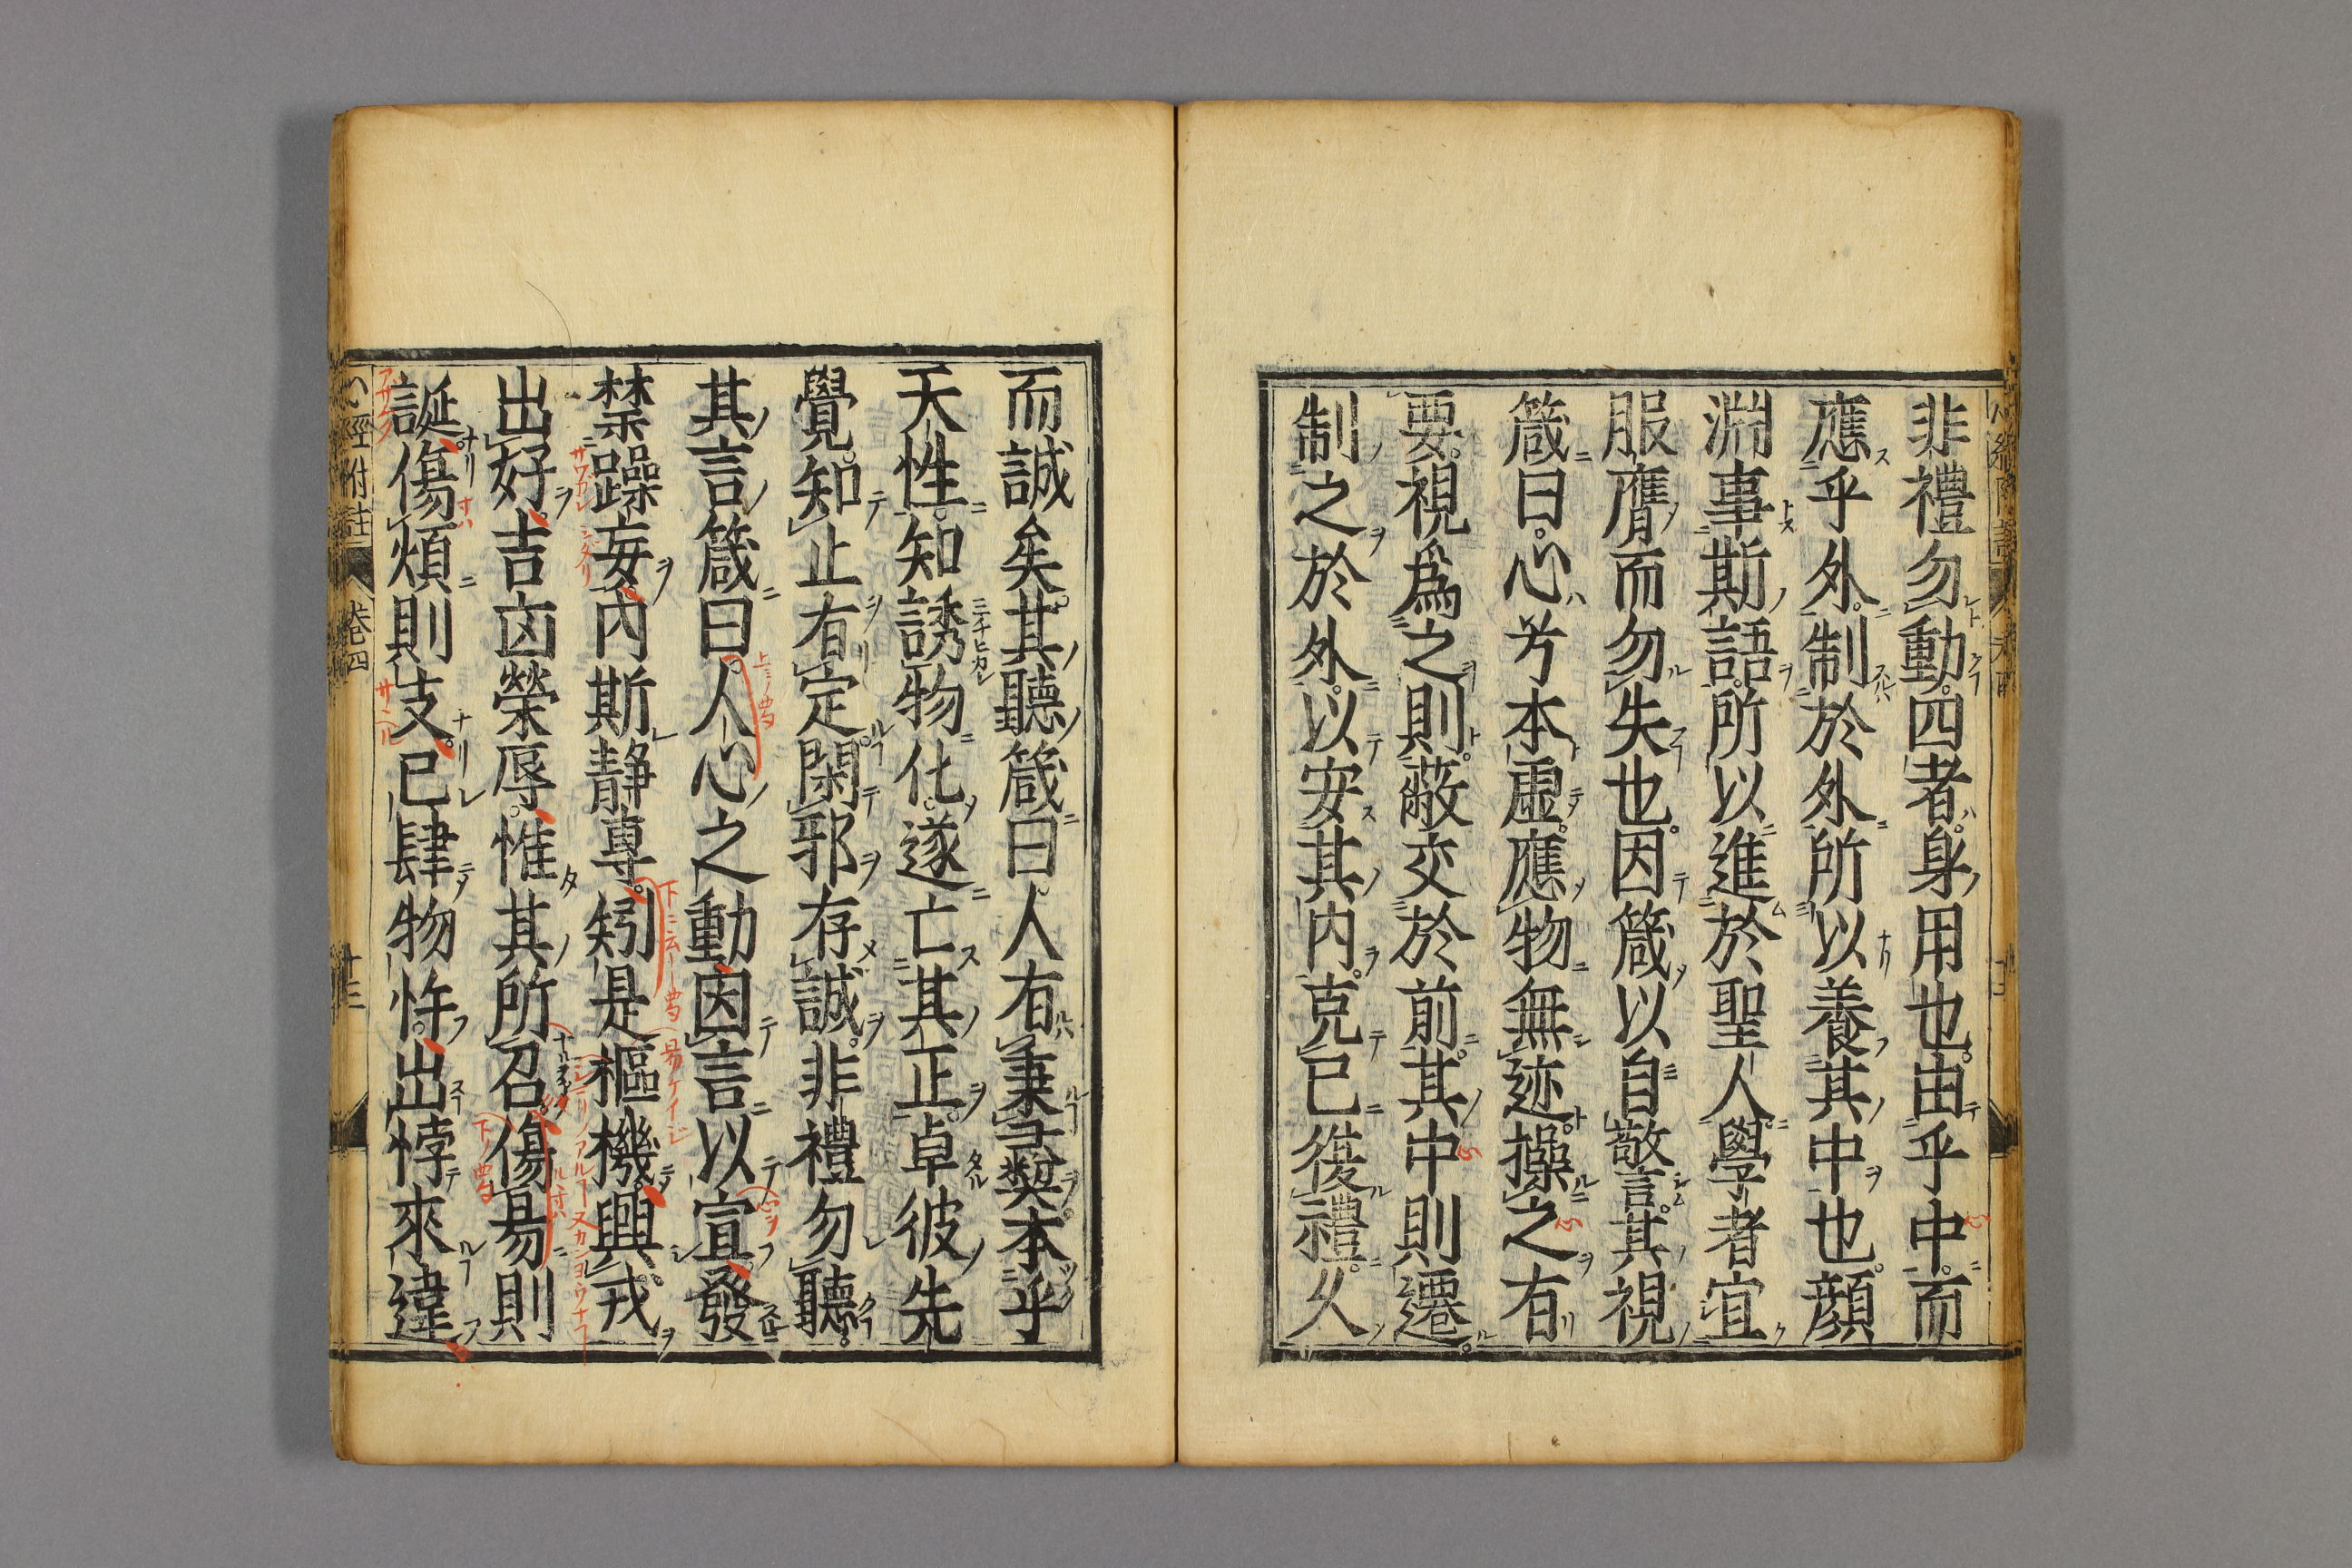 非禮勿動四者身用也由乎中而
應乎外制於外所以養其中也顔
淵事斯語所以進於聖人學者宜
服膺而勿失也因箴以自警其視
箴曰心兮本虛應物無迹操之有
要視爲之則蔽交於前其中則遷
制之於外以安其內克己復禮久
而誠矣其聽箴曰人有秉彝本乎
天性知誘物化遂亡其正卓彼先
覺知止有定閑邪存誠非禮勿聽
其言箴曰人心之動因言以宣發
禁躁妄內斯静專矧是樞機興戎
出好吉凶榮辱惟其所召傷易則
誕傷煩則支己肆物忤出悖來違
心經附註 卷四 十三